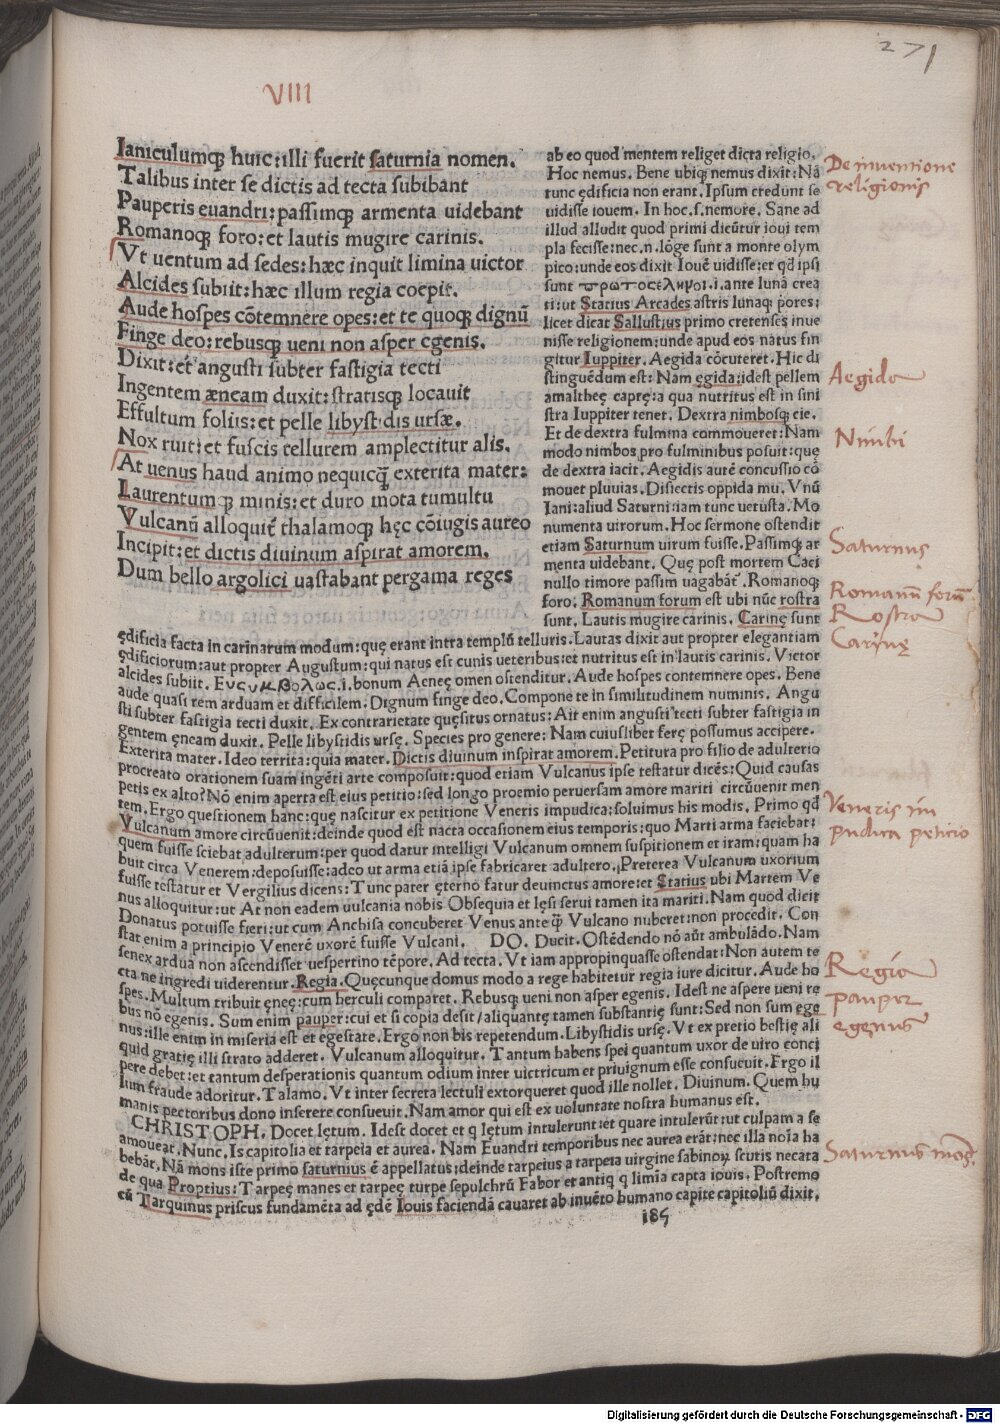 271
VIII
Ianiculumq̃ huic: illi fuerit saturnia nomen.
Talibus inter se dictis ad tecta subibant
Pauperis euandri: passimq̃ armenta uidebant
Romanoq̃ foro: et lautis mugire carinis.
Vt uentum ad sedes: hæc inquit limina uictor
Alcides subiit: hæc illum regia coepit.
Aude hospes cõtemnere opes: et te quoq̃ dignũ
Finge deo: rebusq̃ ueni non asper egenis.
Dixit: et angusti subter fastigia tecti
Ingentem æneam duxit: stratisq̃ locauit
Effultum foliis: et pelle libystidis ursæ.
Nox ruit: et fuscis tellurem amplectitur alis.
At uenus haud animo nequicq̃ exterita mater:
Laurentum q̃ minis: et duro mota tumultu
Vulcanũ alloquit̃ thalamoq̃ hęc cõiugis aureo
Incipit: et dictis diuinum aspirat amorem.
Dum bello argolici uastabant pergama reges
ab eo quod mentem religet dicta religio.
Hoc nemus. Bene ubiq̃ nemus dixit: Nã
tunc ędificia non erant. Ipsum credunt se
uidisse iouem. In hoc .s. nemore. Sane ad
illud alludit quod primi dicũtur ioui tem
pla fecisse: nec .n. lõge sunt a monte olym
pico: unde eos dixit Iouẽ uidisse: et qđ ipsi
sunt πρωτοσέληνοι .i. ante lunã crea
ti: ut Statius Arcades astris lunaq̃ pores:
licet dicat Sallustius primo cretenses inue
nisse religionem: unde apud eos natus fin
gitur Iuppiter. Aegida cõcuteret. Hic di
stinguẽdum est: Nam ęgida: idest pellem
amaltheę caprę: a qua nutritus est in sini
stra Iuppiter tenet. Dextra nimbosq̃ cie.
Et de dextra fulmina commoueret: Nam
modo nimbos pro fulminibus posuit: quę
de dextra iacit. Aegidis autẽ concussio cõ
mouet pluuias. Disiectis oppida mu. Vnũ
Iani: aliud Saturni: iam tunc uetusta. Mo
numenta uirorum. Hoc sermone ostendit
etiam Saturnum uirum fuisse. Passimq̃ ar
menta uidebant. Quę post mortem Caci
nullo timore passim uagabãt. Romanoq̃
foro. Romanum forum est ubi nũc rostra
sunt. Lautis mugire carinis. Carinę sunt
ędificia facta in carinarum modum: quę erant intra templũ telluris. Lautas dixit aut propter elegantiam
ędificiorum: aut propter Augustum: qui natus est cunis ueteribus: et nutritus est in lautis carinis. Victor
alcides subiit. .i. bonum Aeneę omen ostenditur. Aude hospes contemnere opes. Bene
aude quasi rem arduam et difficilem. Dignum finge deo. Compone te in similitudinem numinis. Angu
sti subter fastigia tecti duxit. Ex contrarietate quęsitus ornatus: Ait enim angusti tecti subter fastigia in
gentem ęneam duxit. Pelle libystidis ursę. Species pro genere: Nam cuiuslibet ferę possumus accipere.
Exterita mater. Ideo territa: quia mater. Dictis diuinum inspirat amorem. Petitura pro filio de adulterio
procreato orationem suam ingẽti arte composuit: quod etiam Vulcanus ipse testatur dicẽs: Quid causas
petis ex alto? Nõ enim aperta est eius petitio: sed longo proemio peruersam amore mariti circũuenit men
tem. Ergo questionem hanc: quę nascitur ex petitione Veneris impudica: soluimus his modis. Primo qđ
Vulcanum amore circũuenit: deinde quod est nacta occasionem eius temporis: quo Marti arma faciebat:
quem fuisse sciebat adulterum: per quod datur intelligi Vulcanum omnem suspitionem et iram: quam ha
buit circa Venerem: deposuisse: adeo ut arma etiã ipse fabricaret adultero. Preterea Vulcanum uxorium
fuisse testatur et Vergilius dicens: Tunc pater ęterno fatur deuinctus amore: et Statius ubi Martem Ve
nus alloquitur: ut At non eadem uulcania nobis Obsequia et lęsi serui tamen ita mariti. Nam quod dicit
Donatus potuisse fieri: ut cum Anchisa concuberet Venus ante q̃ Vulcano nuberet: non procedit. Con
stat enim a principio Venerẽ uxorẽ fuisse Vulcani. DO. Ducit. Ostẽdendo nõ aũt ambulãdo. Nam
senex ardua non ascendisset uespertino tẽpore. Ad tecta. Vt iam appropinquasse ostendat: Non autem te
cta ne ingredi uiderentur. Regia. Quęcunque domus modo a rege habitetur regia iure dicitur. Aude ho
spes. Multum tribuit ęneę: cum herculi comparet. Rebusq̃ ueni non asper egenis. Idest ne aspere ueni re
bus nõ egenis. Sum enim pauper: cui et si copia desit/ aliquantę tamen substantię sunt: Sed non sum ege
nus: ille enim in miseria est et egestate. Ergo non bis repetendum. Libystidis ursę. Vt ex pretio bestię ali
quid gratię illi strato adderet. Vulcanum alloquitur. Tantum habens spei quantum uxor de uiro conci
pere debet: et tantum desperationis quantum odium inter uictricum et priuignum esse consueuit. Ergo il
lum fraude adoritur. Talamo. Vt inter secreta lectuli extorqueret quod ille nollet. Diuinum. Quem hu
manis pectoribus dono inserere consueuit. Nam amor qui est ex uoluntate nostra humanus est.
CHRISTOPH. Docet lętum. Idest docet et q lętum intulerunt: et quare intulerũt: ut culpam a se
amoueat. Nunc. Is capitolia et tarpeia et aurea. Nam Euandri temporibus nec aurea erãt: nec illa noĩa ha
bebãt. Nã mons iste primo saturnius ẽ appellatus: deinde tarpeius a tarpeia uirgine sabinoꝝ scutis necata
de qua Proptius: Tarpeę manes et tarpeę turpe sepulchrũ Fabor et antiq q limĩa capta iouis. Postremo
cũ Tarquinus priscus fundamẽta ad ędẽ Iouis faciendã cauaret ab inuẽto humano capite capitoliũ dixit.
185
De inuentione
religionis
Aegida
Nimbi
Saturnus
Romanũ forũ
Rostra
Carinę
Veneris im
pudica peticio
Regia
pauper
egenus
Saturnus mõs
Digitalisierung gefördert durch die Deutsche Forschungsgemeinschaft - DFG